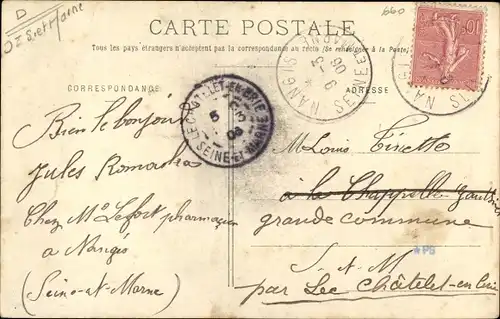 D
Oz Set Marne
660
CARTE POSTALE
Tous les pays étrangers n'acceptent pas la correspondance au recto (Se renseigner à la Poste)
CORRESPONDANCE
ADRESSE
LE CHATELET-EN-BRIE
5
08
SEINE-ET-MARNE
NANGIS
SEINE ET MARNE
10
Bien le bonjour
Jules
Chez Mr Lefort pharmacien
a Nangis
(Seine-et-Marne)
Mr Louis Tinette
à la Chappelle
grande commune
S-et-M
par Lee Châtelet-en-Brie
*PS